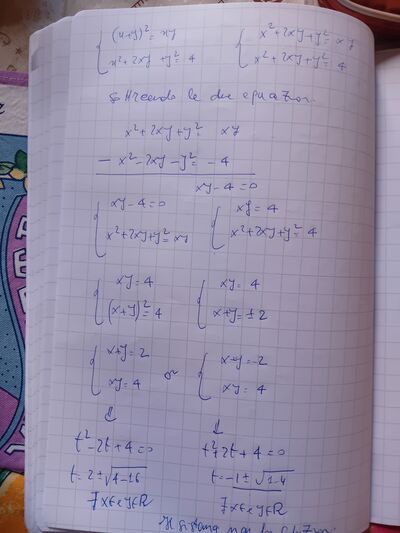 { (x+y)² = xy { x²+2xy+y² = xy
{ x²+2xy+y² = 4 { x²+2xy+y² = 4
Sottraendo le due equazioni
x²+2xy+y² = xy
- x²-2xy-y² = -4
xy-4=0
{ xy-4=0 { xy = 4
{ x²+2xy+y² = xy { x²+2xy+y² = 4
{ xy = 4 { xy = 4
{ (x+y)² = 4 { x+y = ±2
{ x+y = 2 or { x+y = -2
{ xy = 4 { xy = 4
⇓ ⇓
t²-2t+4=0 t²+2t+4=0
t = 2±√4-16 t = -1±√1-4
∄ x∈ e y∈R ∄ x∈ e y∈R
Il sistema non ha